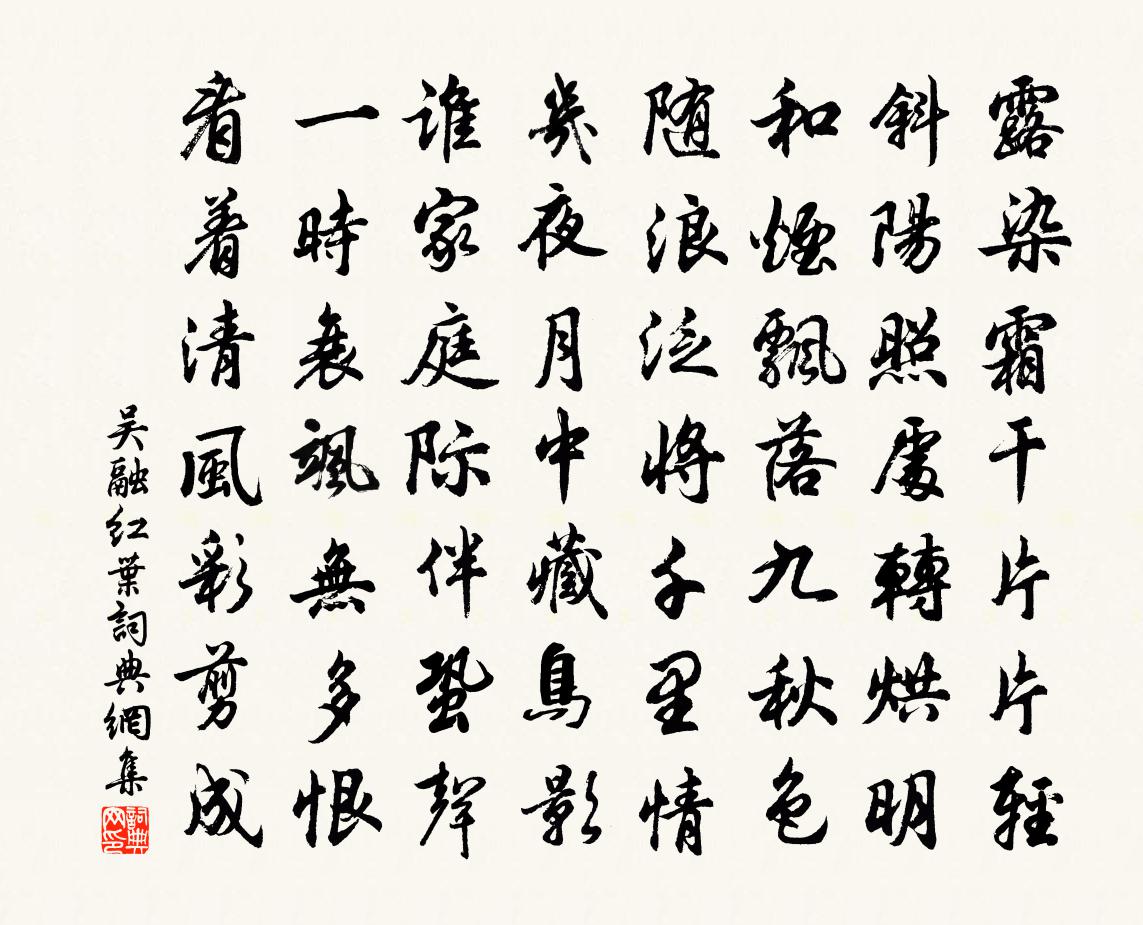 露染霜干片片輕
斜陽照處轉烘明
和煙飄落九秋色
隨浪泛將千里情
幾夜月中藏鳥影
誰家庭際伴蛩聲
一時衰颯無多恨
看着清風彩剪成
吴融紅葉詞典網集
詞典网印